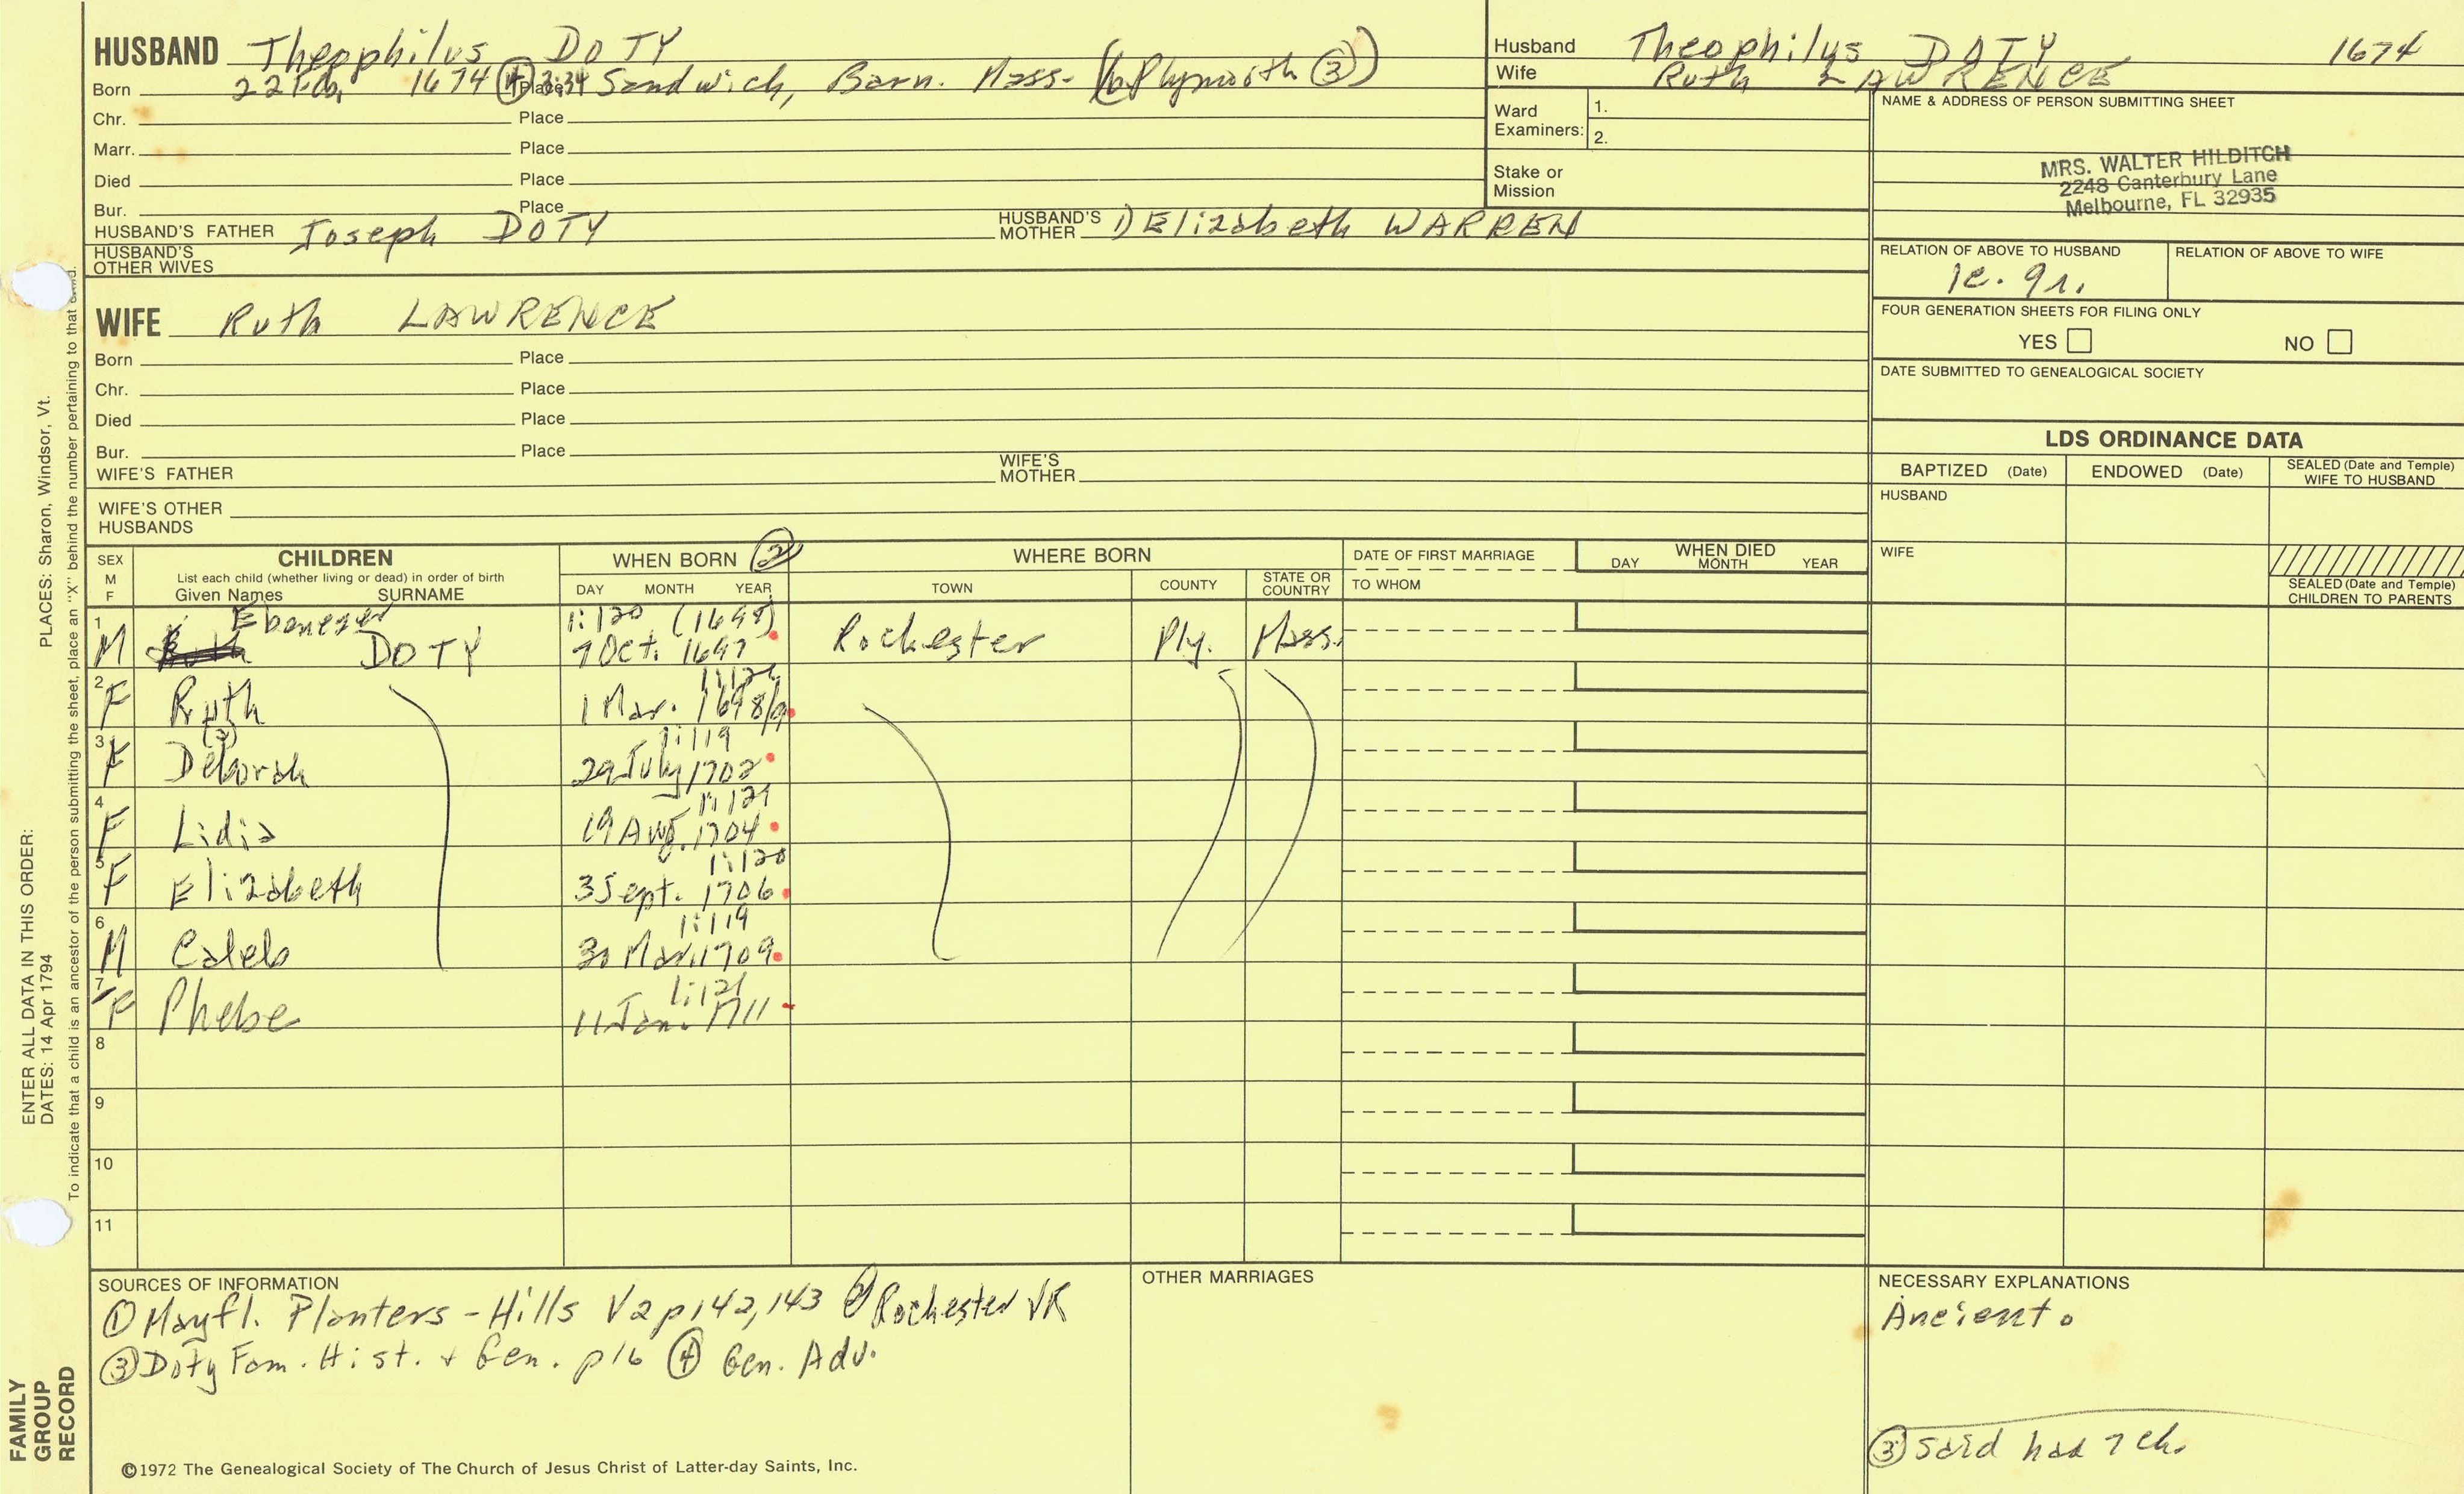 HUSBAND Theophilus DOTY
Born 22 Feb. 1674 ④ 3:34 Place Sandwich, Barn. Mass. (b Plymouth ③)
Chr. Place
Marr. Place
Died Place
Bur. Place
HUSBAND'S FATHER Joseph DOTY HUSBAND'S MOTHER 1) Elizabeth WARREN
HUSBAND'S OTHER WIVES
WIFE Ruth LAWRENCE
Born Place
Chr. Place
Died Place
Bur. Place
WIFE'S FATHER WIFE'S MOTHER
WIFE'S OTHER HUSBANDS
Husband Theophilus DOTY 1674
Wife Ruth LAWRENCE
Ward Examiners: 1.
2.
Stake or Mission
NAME & ADDRESS OF PERSON SUBMITTING SHEET
MRS. WALTER HILDITCH
2248 Canterbury Lane
Melbourne, FL 32935
RELATION OF ABOVE TO HUSBAND RELATION OF ABOVE TO WIFE
1c. 9r.
FOUR GENERATION SHEETS FOR FILING ONLY
YES NO
DATE SUBMITTED TO GENEALOGICAL SOCIETY
LDS ORDINANCE DATA
BAPTIZED (Date) ENDOWED (Date) SEALED (Date and Temple) WIFE TO HUSBAND
HUSBAND
WIFE
SEALED (Date and Temple) CHILDREN TO PARENTS
SEX M F CHILDREN WHEN BORN ② WHERE BORN DATE OF FIRST MARRIAGE WHEN DIED
List each child (whether living or dead) in order of birth
Given Names SURNAME DAY MONTH YEAR TOWN COUNTY STATE OR COUNTRY TO WHOM DAY MONTH YEAR
1 Ebenezer 1:120 (1695)
M Ruth DOTY 7 Oct. 1697 Rochester Ply. Mass.
2 1:121
F Ruth 1 Mar. 1698/9
3 (3) 1:119
F Deborah 29 July 1702
4 1:121
F Lidia 19 Aug. 1704
5 1:120
F Elizabeth 3 Sept. 1706
6 1:119
M Caleb 30 Mar. 1709
7 1:121
F Phebe 11 Jan. 1711
8
9
10
11
SOURCES OF INFORMATION
① Mayfl. Planters - Hills V2 p142, 143 ② Rochester VR
③ Doty Fam. Hist. + Gen. p16 ④ Gen. Adv.
OTHER MARRIAGES
NECESSARY EXPLANATIONS
Ancient.
③ said had 7 ch.
©1972 The Genealogical Society of The Church of Jesus Christ of Latter-day Saints, Inc.
FAMILY GROUP RECORD
ENTER ALL DATA IN THIS ORDER:
DATES: 14 Apr 1794 PLACES: Sharon, Windsor, Vt.
To indicate that a child is an ancestor of the person submitting the sheet, place an "X" behind the number pertaining to that child.